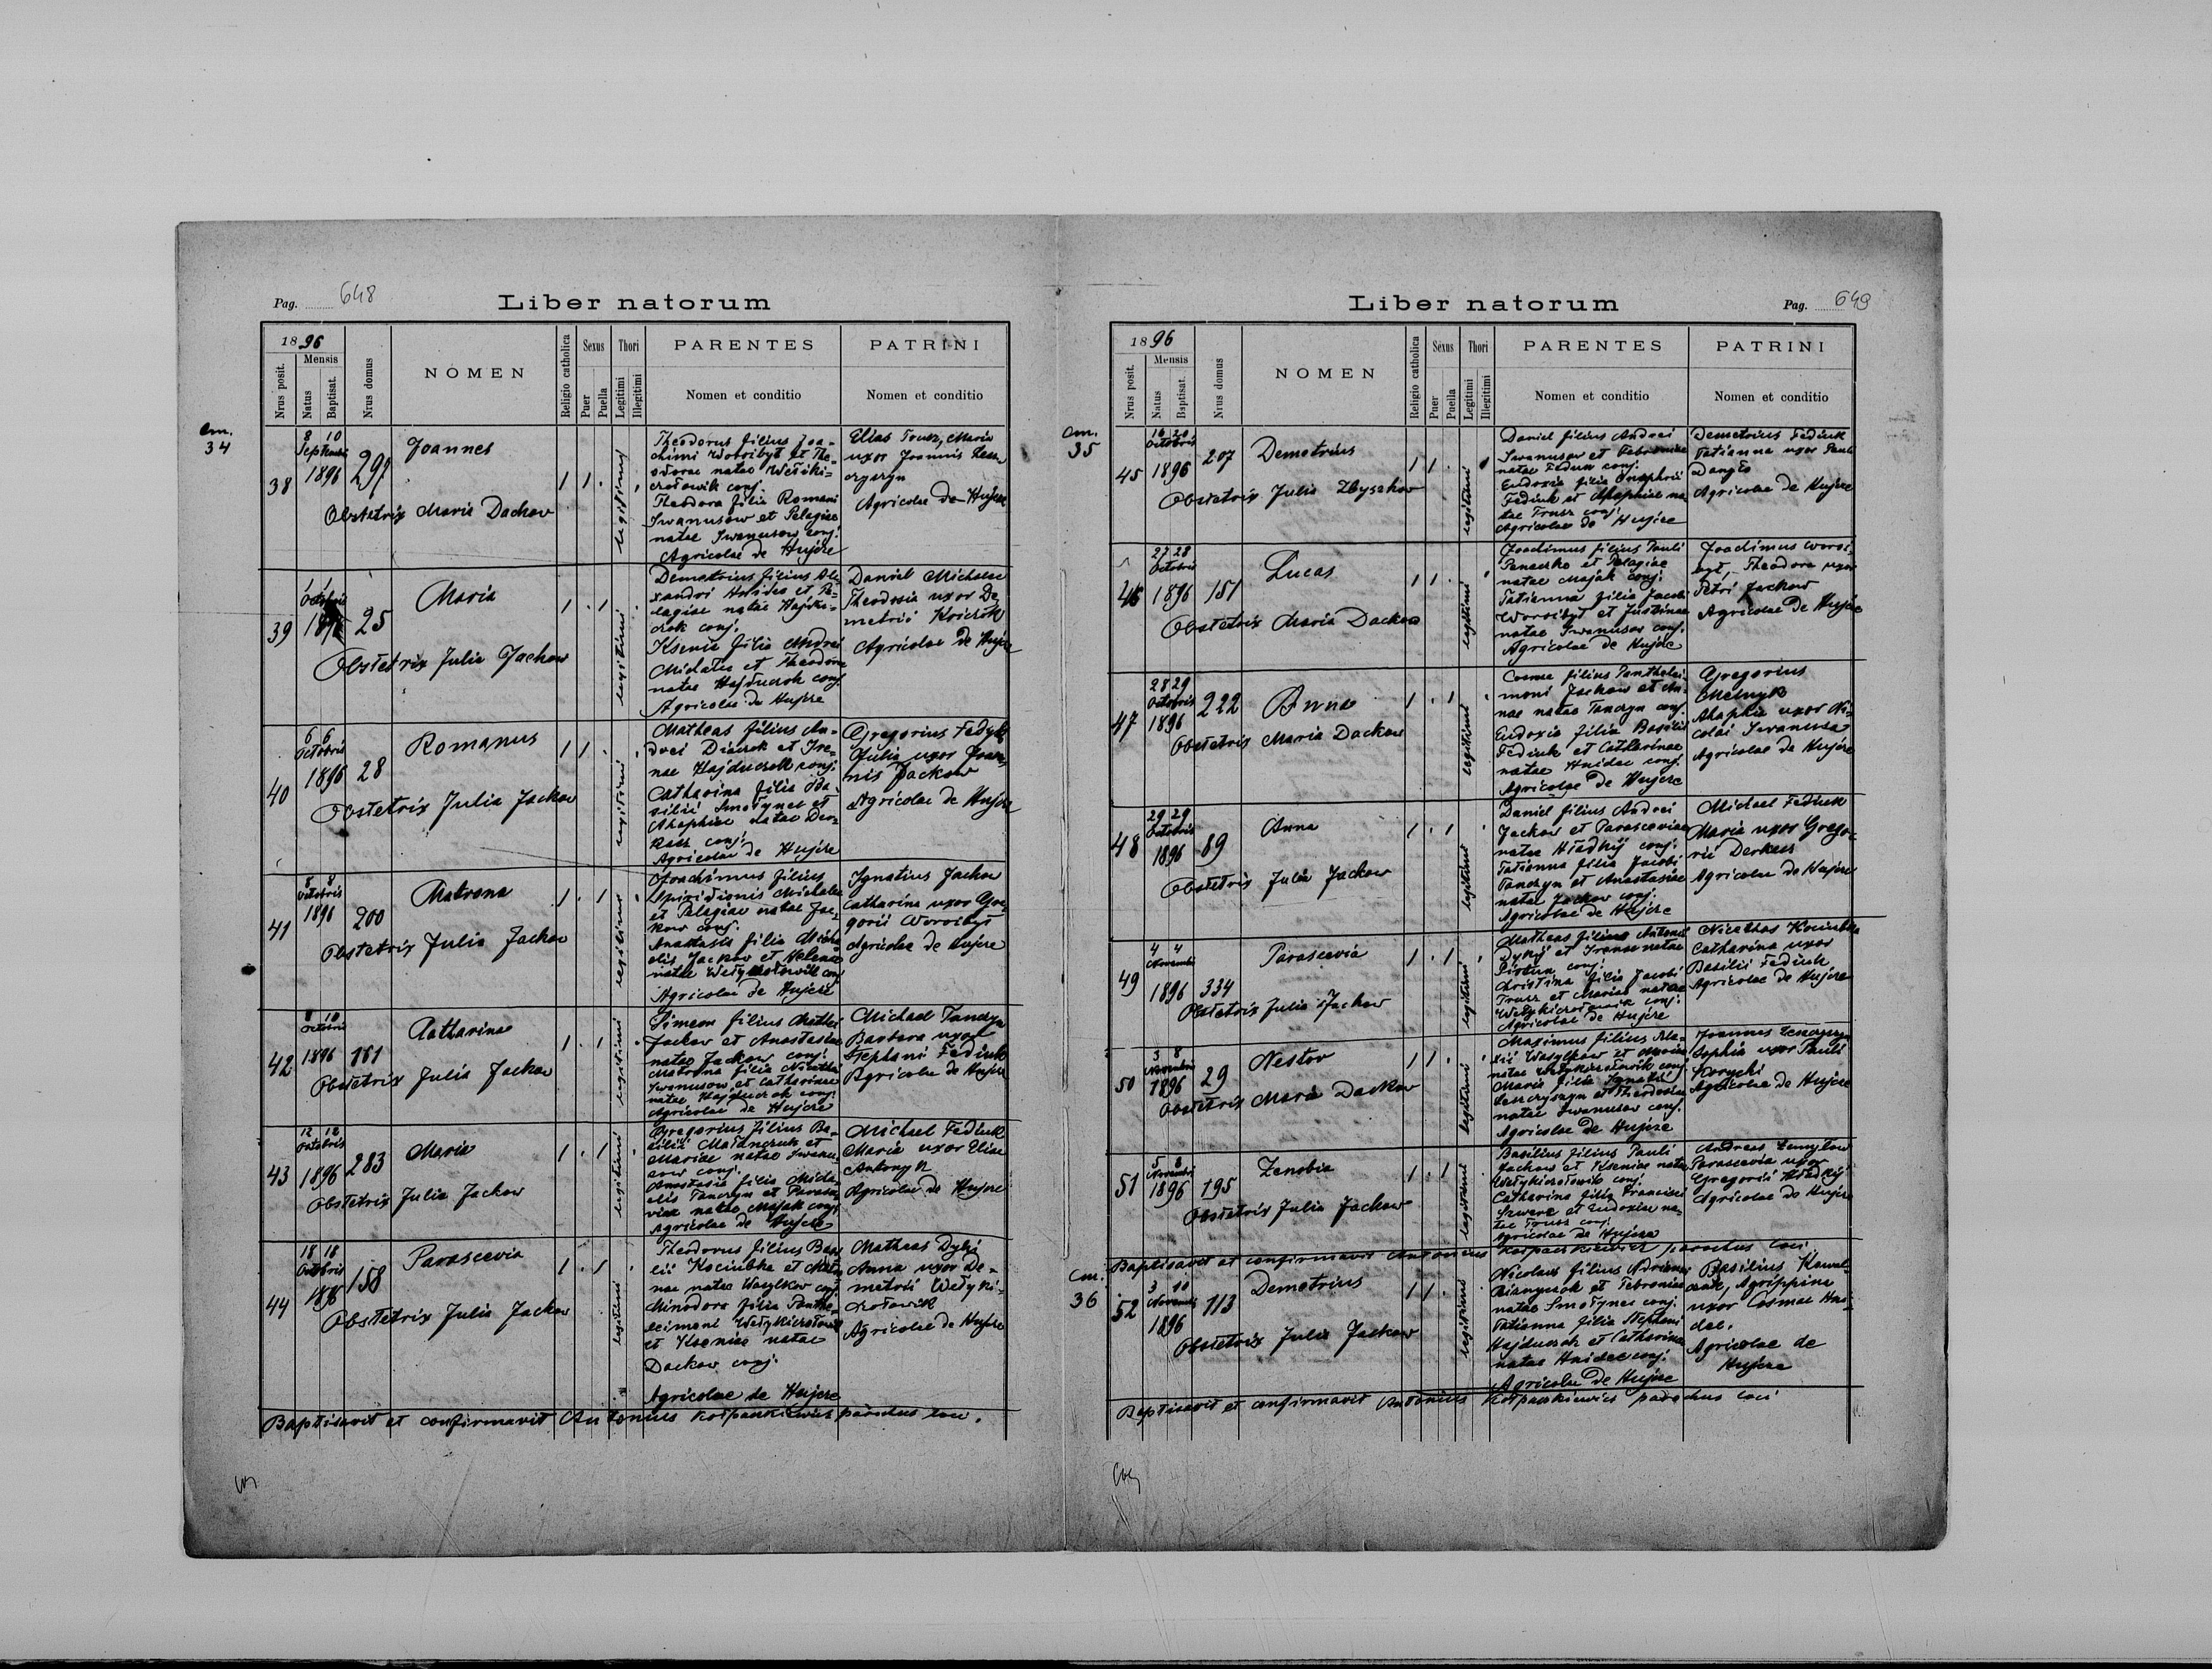 Pag. 648
Liber natorum
1896
Mensis
Nrus posit.
Natus
Baptisat.
Nrus domus
NOMEN
Religio catholica
Sexus
Puer
Puella
Thori
Legitimi
Illegitimi
PARENTES
Nomen et conditio
PATRINI
Nomen et conditio
cm.
34
38
8 10
1896
Joannes
1 1 .
legitimi
Obstetrix Maria Dackow
Theodorus filius Joa-
chimi Worobyt et The-
odorae natae Wełiki-
chołowik conj.
Theodora filia Romani
Iwanusow et Pelagiae
natae Iwanusow conj.
Agricolae de Hujcze
Elias Trusz, Maria
uxor Joannis
Agricolae de Hujcze
39
Octobris
25
Maria
1 . 1
legitimi
Obstetrix Julia Jackow
Demetrius filius Ale-
xandri et Pe-
lagiae natae
conj.
Ksenia filia Andrei
Michalec et Theodora
natae Hajduczok conj.
Agricolae de Hujcze
Daniel Michalec
Theodosia uxor De-
metrii
Agricolae de Hujcze
40
6 6
Octobris
1896
28
Romanus
1 1 .
legitimi
Obstetrix Julia Jackow
Matheas filius An-
drei et Ire-
nae Hajduczok conj.
Catharina filia Ba-
silii Smołynec et
Ahaphiae natae Der-
kacz conj.
Agricolae de Hujcze
Gregorius Fedyk
Julia uxor Joan-
nis Jackow
Agricolae de Hujcze
41
8 8
Octobris
1896
200
Matrona
1 . 1
legitimi
Obstetrix Julia Jackow
Joachimus filius
Spiridionis Michalec
et Pelagiae natae Jac-
kow conj.
Anastasia filia Micha-
elis Jackow et Helenae
natae conj.
Agricolae de Hujcze
Ignatius Jackow
Catharina uxor Gre-
gorii Worobyt
Agricolae de Hujcze
42
8 10
Octobris
1896
181
Catharina
1 . 1
legitimi
Obstetrix Julia Jackow
Simeon filius Mathei
Jackow et Anastasiae
natae Jackow conj.
Matrona filia Nicethae
Iwanusow et Catharinae
natae Hajduczok conj.
Agricolae de Hujcze
Michael Tanczyn
Barbara uxor
Stephani Fediuk
Agricolae de Hujcze
43
12 12
Octobris
1896
283
Maria
1 . 1
legitimi
Obstetrix Julia Jackow
Gregorius filius Ba-
silii Małanczuk et
Mariae natae Iwanu-
sow conj.
Anastasia filia Micha-
elis Tanczyn et Parasce-
viae natae Majak conj.
Agricolae de Hujcze
Michael Fediuk
Maria uxor Eliae
Antonyk
Agricolae de Hujcze
44
18 18
Octobris
1896
158
Parascevia
1 . 1
legitimi
Obstetrix Julia Jackow
Theodorus filius Basi-
lii Kociubka et
nae natae Wasylkow conj.
Minodora filia Panthe-
leimoni
et Kseniae natae
Dackow conj.
Agricolae de Hujcze
Matheas Dykyj
Anna uxor De-
metrii Wełyki-
chołowik
Agricolae de Hujcze
Baptisavit et confirmavit Antonius Kołpaczkiewicz parochus loci.
Liber natorum
Pag. 649
1896
Mensis
Nrus posit.
Natus
Baptisat.
Nrus domus
NOMEN
Religio catholica
Sexus
Puer
Puella
Thori
Legitimi
Illegitimi
PARENTES
Nomen et conditio
PATRINI
Nomen et conditio
cm.
35
45
16 20
Octobris
1896
207
Demetrius
1 1 .
legitimi
Obstetrix Julia Zbyszkow
Daniel filius Andrei
Iwanusow et Febroniae
natae Fediuk conj.
Eudoxia filia Onuphrii
Fediuk et Ahaphiae na-
tae Trusz conj.
Agricolae de Hujcze
Demetrius Fediuk
Tatianna uxor Pauli
Agricolae de Hujcze
46
27 28
Octobris
1896
181
Lucas
1 1 .
legitimi
Obstetrix Maria Dackow
Joachimus filius Pauli
Panasko et Pelagiae
natae Majak conj.
Tatianna filia Jacobi
Worobyt et Justinae
natae Iwanusow conj.
Agricolae de Hujcze
Joachimus Worob-
byt, Theodora uxor
Petri Jackow
Agricolae de Hujcze
47
28 29
Octobris
1896
222
Anna
1 . 1
legitimi
Obstetrix Maria Dackow
Cosmas filius Panthelei-
moni Jackow et An-
nae natae Tanczyn conj.
Eudoxia filia Basilii
Fediuk et Catharinae
natae Hnidec conj.
Agricolae de Hujcze
Gregorius
Melnyk
Ahaphia uxor Ni-
colai Iwanusa
Agricolae de Hujcze
48
29 29
Octobris
1896
89
Anna
1 . 1
legitimi
Obstetrix Julia Jackow
Daniel filius Andrei
Jackow et Parasceviae
natae Hładkyj conj.
Tatianna filia Jacobi
Tanczyn et Anastasiae
natae Jackow conj.
Agricolae de Hujcze
Michael Fediuk
Maria uxor Grego-
rii Derkacz
Agricolae de Hujcze
49
4 4
Novembris
1896
334
Parascevia
1 . 1
legitimi
Obstetrix Julia Jackow
Matheas filius Antonii
Dykyj et Irenae natae
conj.
Christina filia Jacobi
Trusz et Mariae natae
Wełykichołowik conj.
Agricolae de Hujcze
Nicethas Kociubka
Catharina uxor
Basilii Fediuk
Agricolae de Hujcze
50
3 8
Novembris
1896
29
Nestor
1 1 .
legitimi
Obstetrix Maria Dackow
Maximus filius Ale-
xii Wasylkow et Mariae
natae Wełykichołowik conj.
Maria filia Ignatii
et Theodosiae
natae Iwanusow conj.
Agricolae de Hujcze
Joannes
Sophia uxor Pauli
Agricolae de Hujcze
51
5 8
Novembris
1896
195
Zenobia
1 . 1
legitimi
Obstetrix Julia Jackow
Basilius filius Pauli
Jackow et Kseniae natae
Wełykichołowik conj.
Catharina filia Francisci
et Eudoxiae na-
tae Trusz conj.
Agricolae de Hujcze
Andreas
Parascevia uxor
Gregorii Hładkyj
Agricolae de Hujcze
Baptisavit et confirmavit Antonius Kołpaczkiewicz parochus loci
cm.
36
52
3 10
Novembris
1896
113
Demetrius
1 1 .
legitimi
Obstetrix Julia Jackow
Nicolaus filius Adriani
et Febroniae
natae Smołynec conj.
Tatianna filia Stephani
Hajduczok et Catharinae
natae Hnidec conj.
Agricolae de Hujcze
Basilius Kowal-
czuk, Agrippina
uxor Cosmae Hni-
dec.
Agricolae de
Hujcze
Baptisavit et confirmavit Antonius Kołpaczkiewicz parochus loci